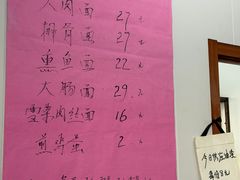 大肉面 27元
排骨面 27元
熏鱼面 22元
大肠面 29元
雪菜肉丝面 16元
煎荷蛋 2元
今日供应油渣